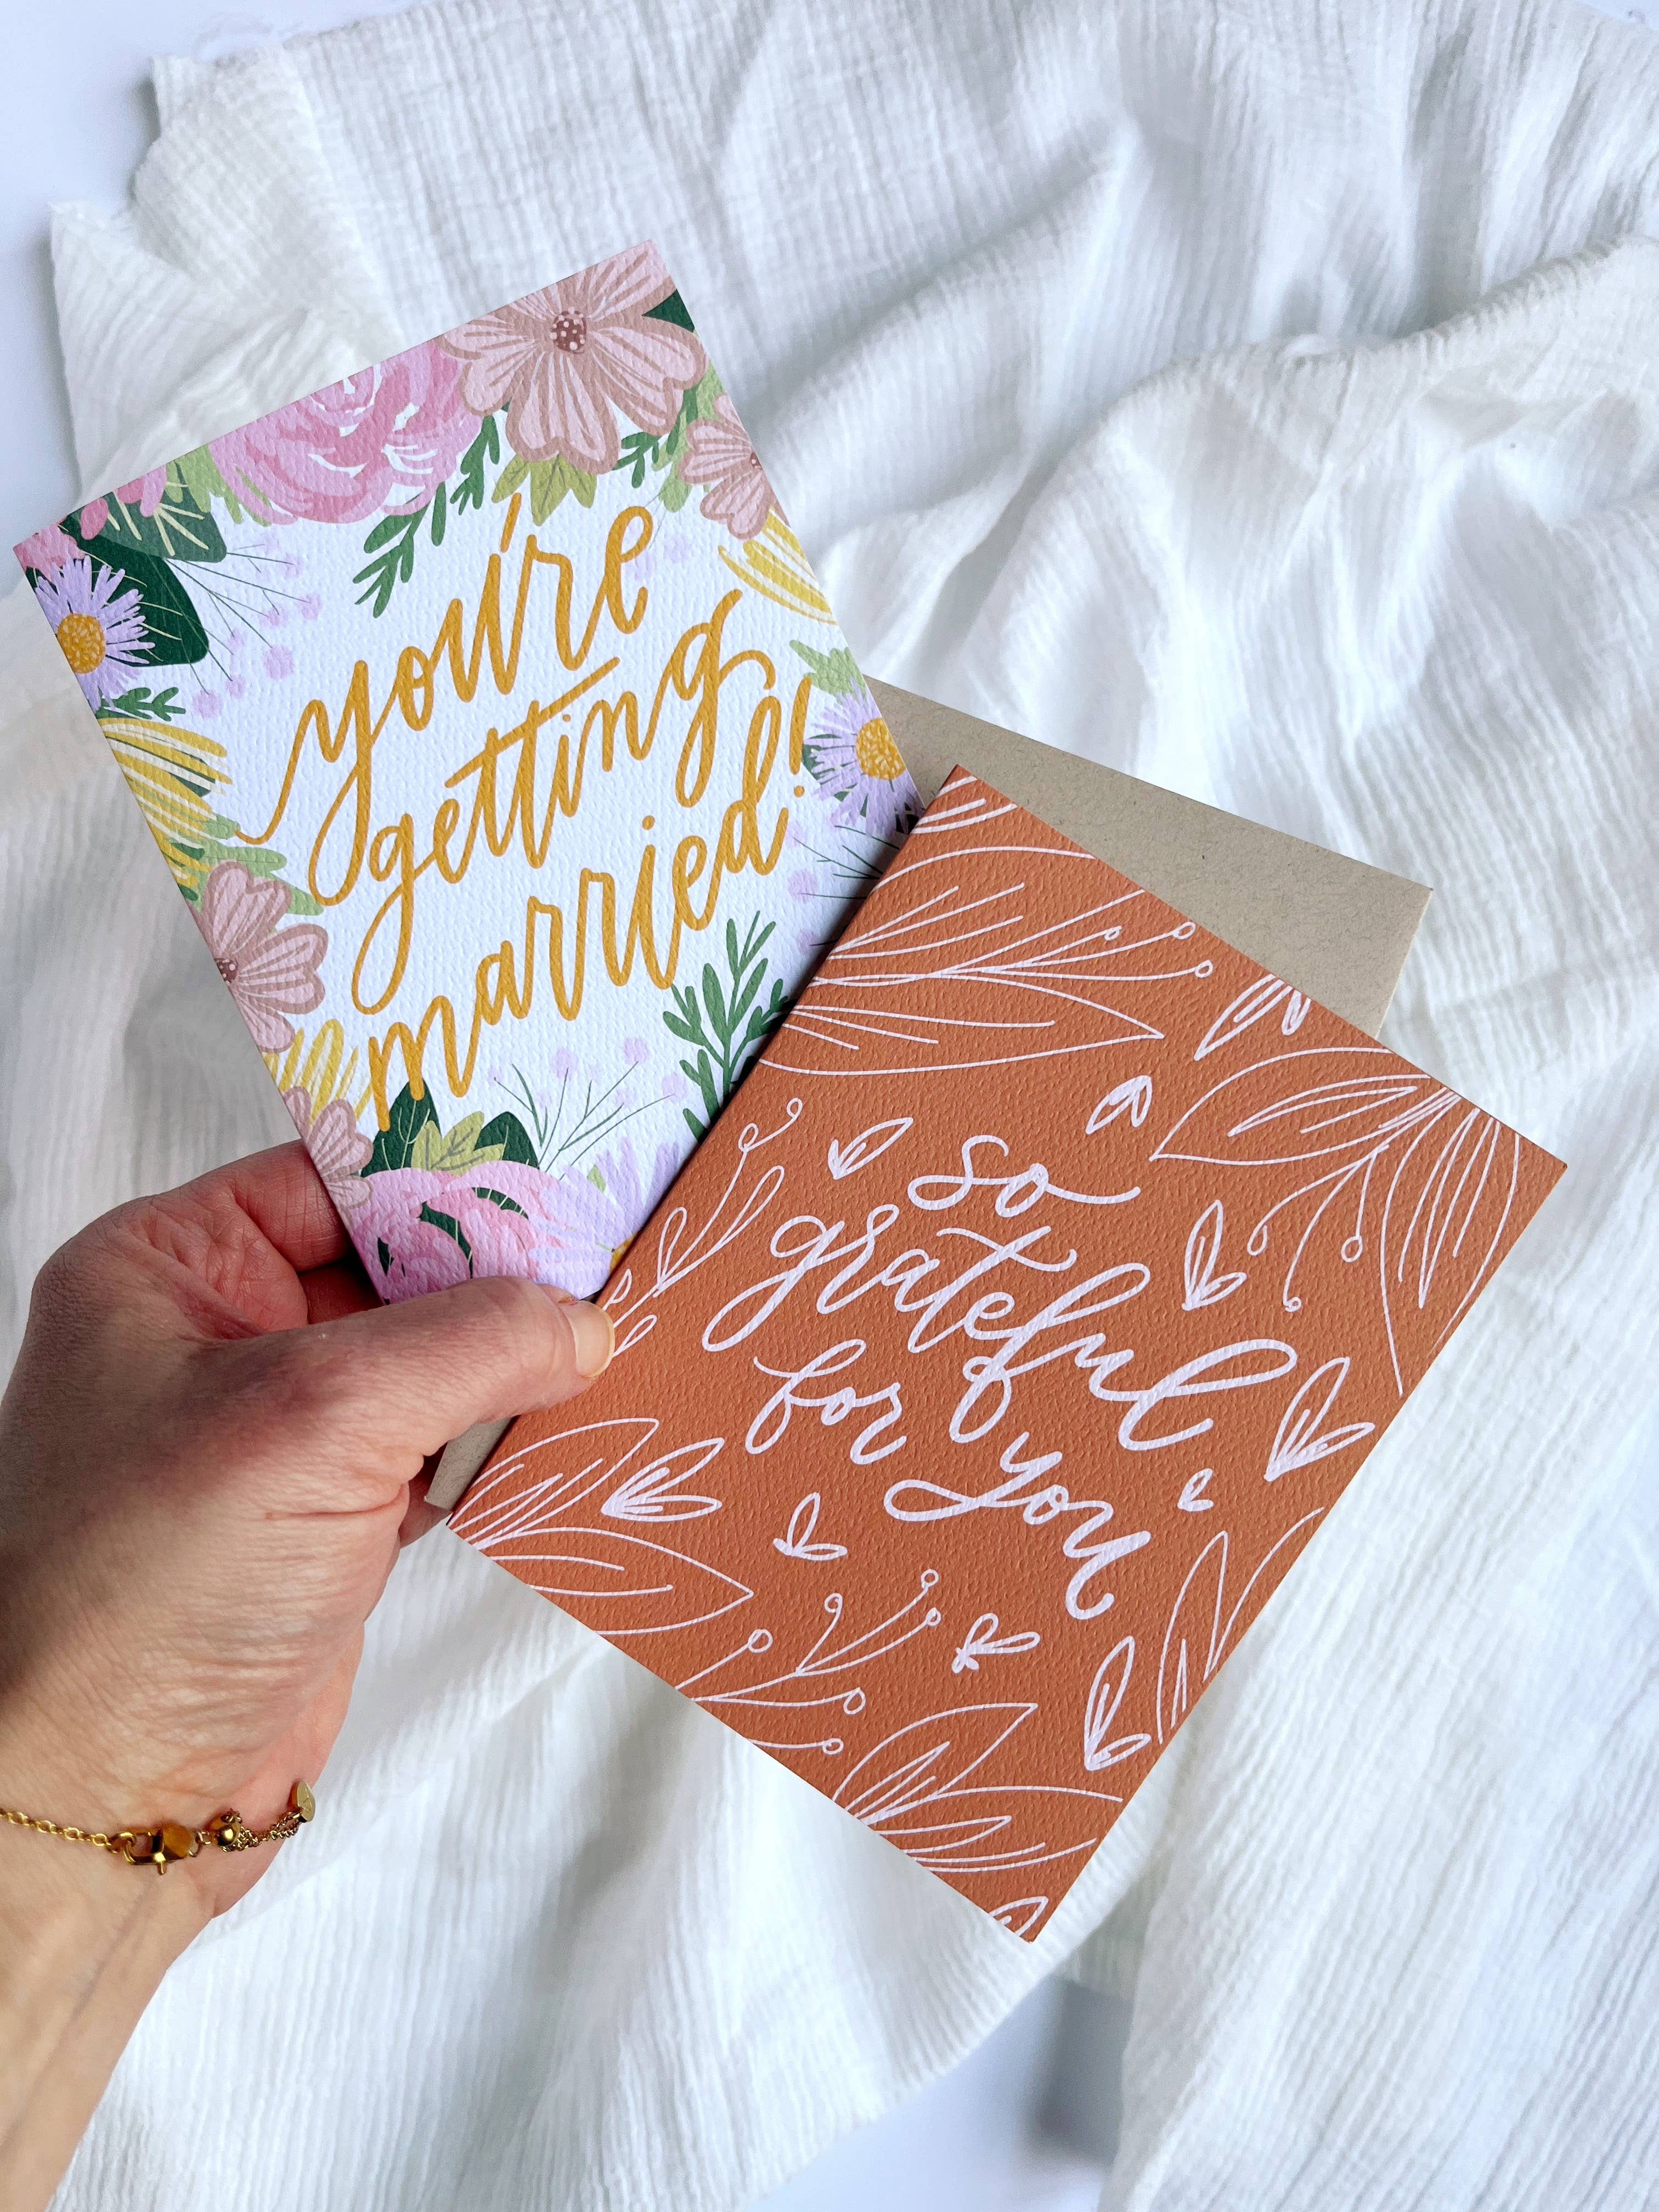 you're
getting
married!
so
grateful
for you